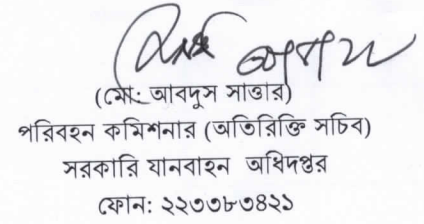 (মো: আবদুস সাত্তার)
পরিবহন কমিশনার (অতিরিক্তি সচিব)
সরকারি যানবাহন অধিদপ্তর
ফোন: ২২৩৩৮৩৪২১